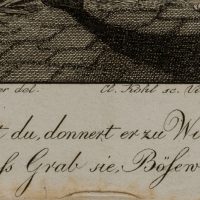 er del. Cl. Kohl sc. Vi
t du, donnert er zu Wi
ss Grab sie, Bösew